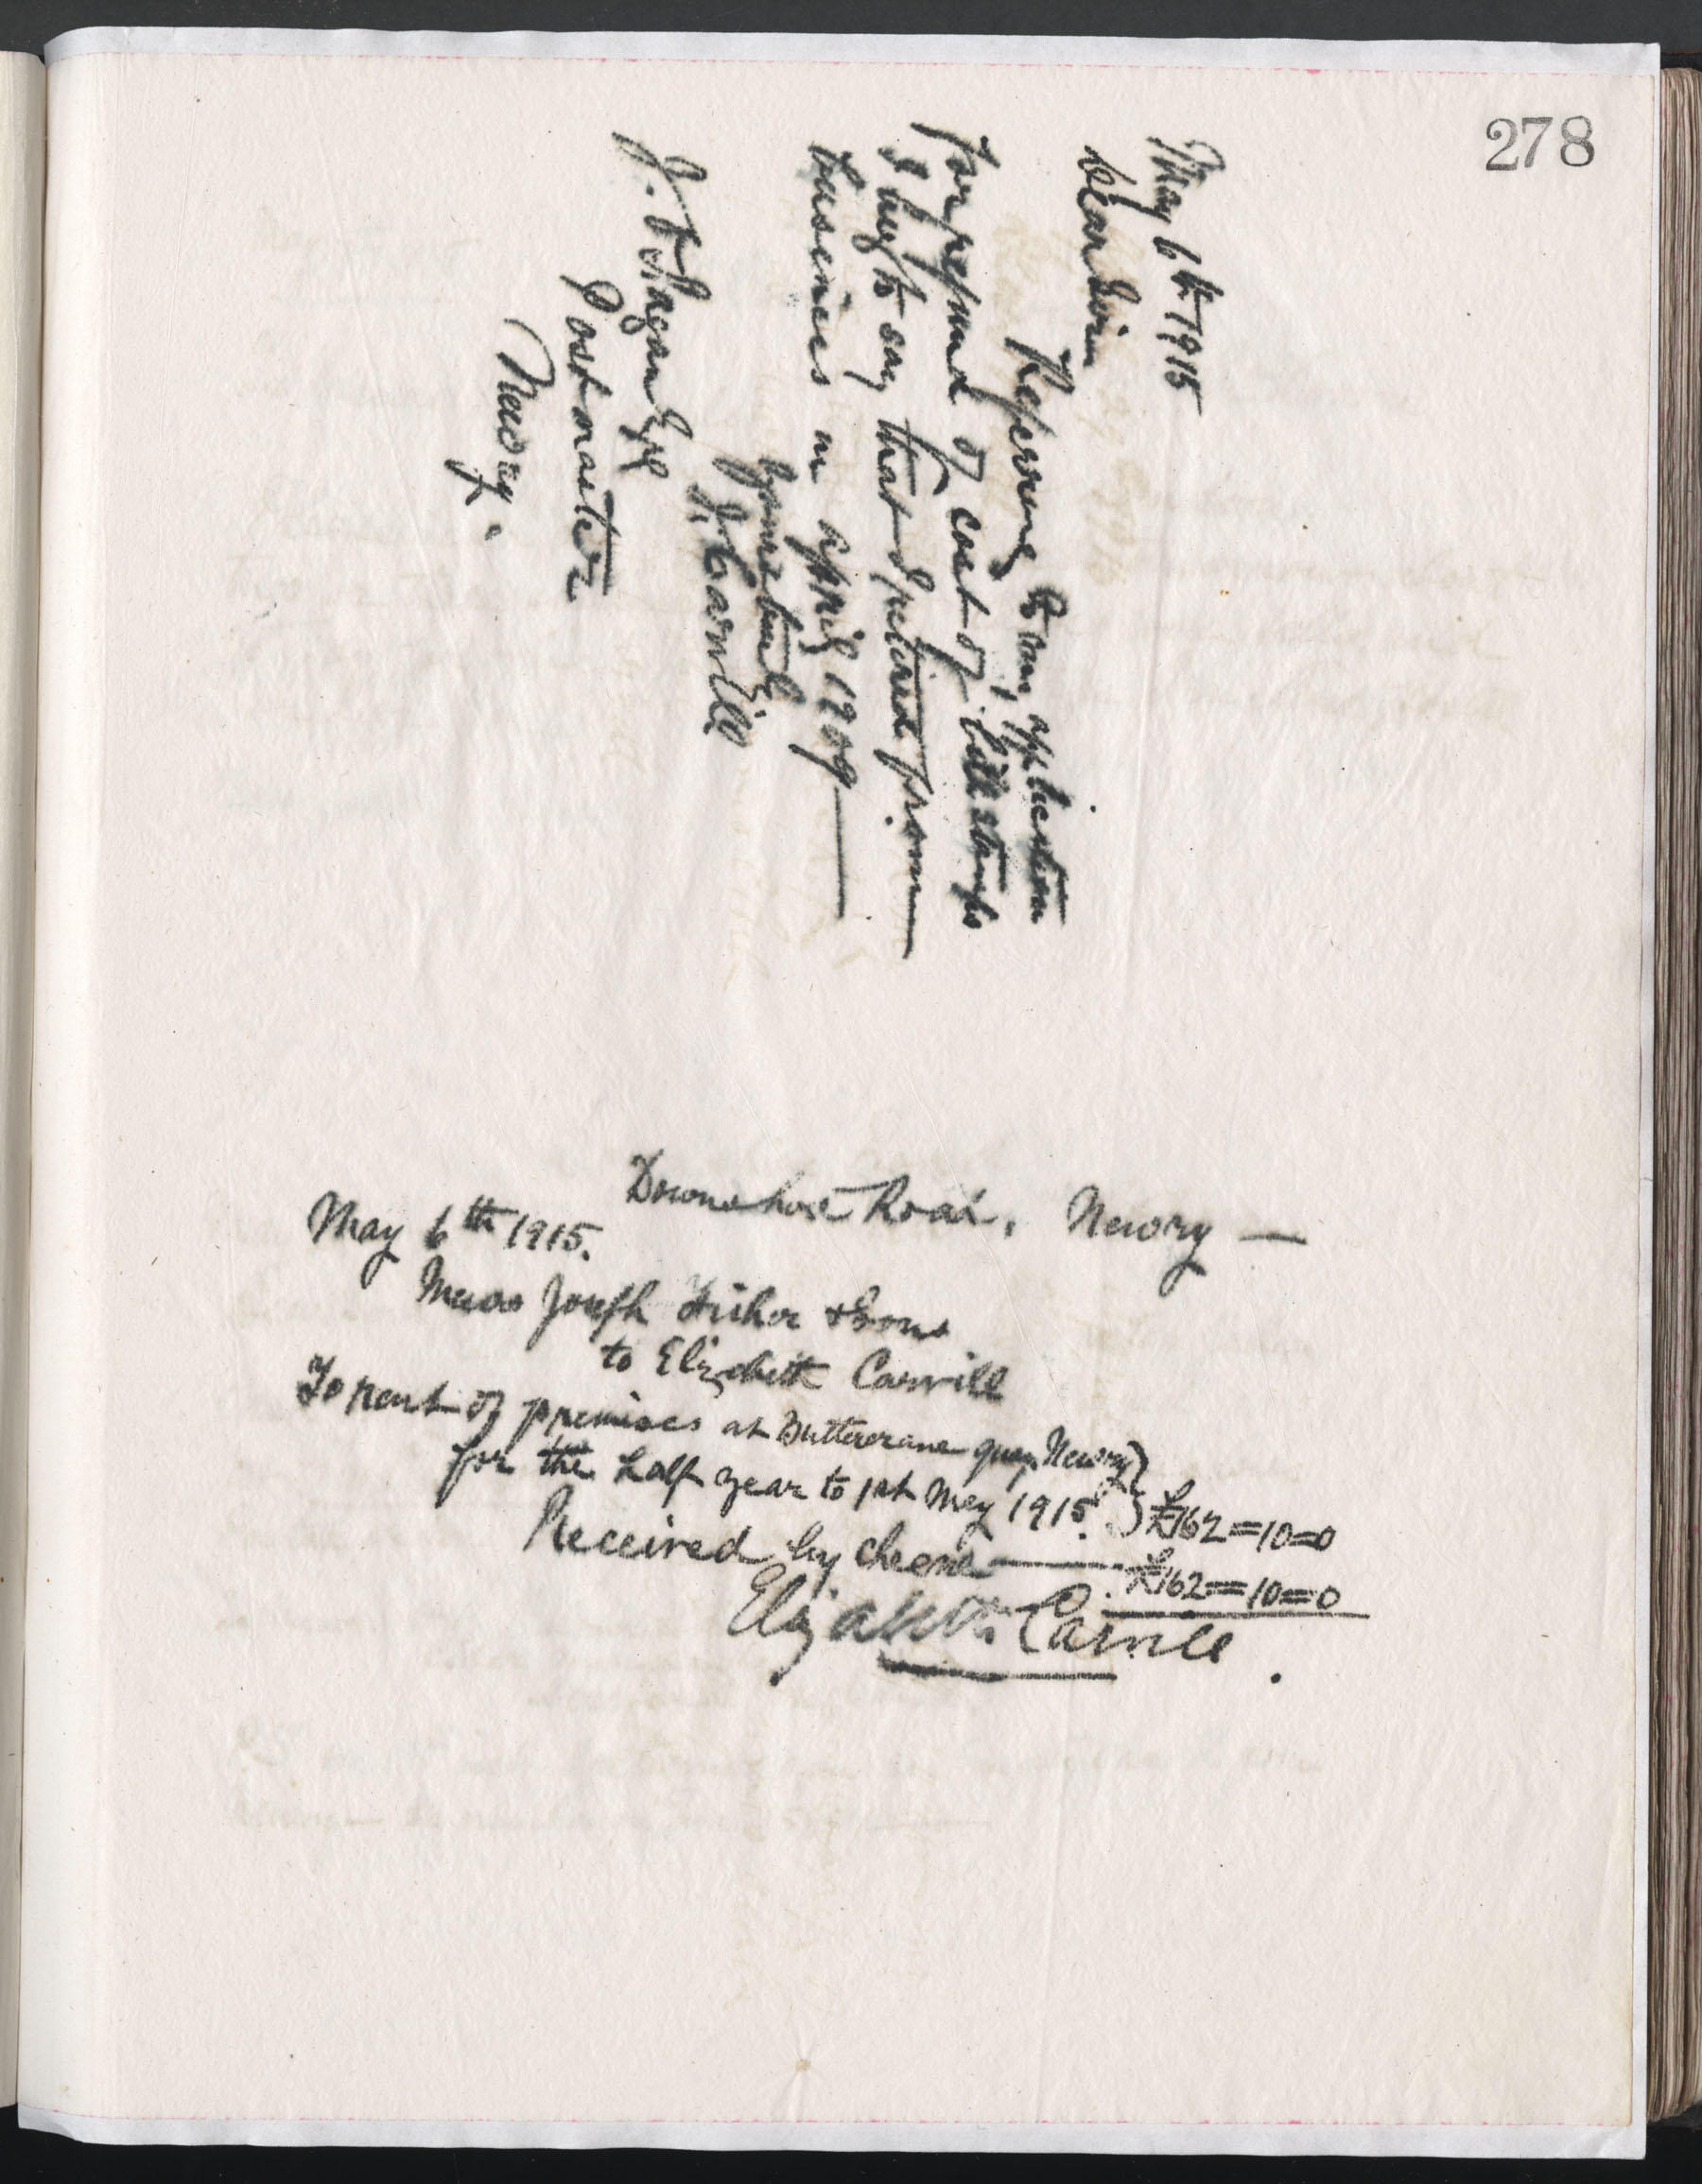 278
May 6th 1915
Dear Sir
Referring to my application
for refund of cost of bill stamps
I beg to say that I retired from
business in April 1909
Yours truly
J. Carvill
J. Fagan Esq
Postmaster
Newry.
Dromalane Road, Newry —
May 6th 1915.
Messrs Joseph Fisher & Sons
to Elizabeth Carvill
To rent of premises at Buttercrane quay, Newry
for the half year to 1st May 1915. £162=10=0
Received by cheque £162=10=0
Elizabeth Carvill.